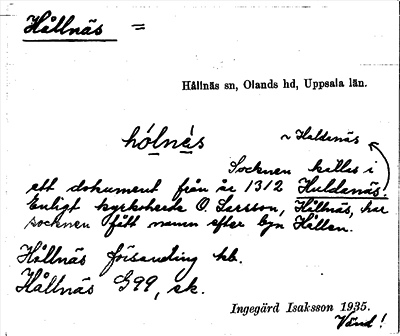 Hållnäs =
Hållnäs sn, Olands hd, Uppsala län.
hólnès
~ Haldanäs
Socknen kallas i
ett dokument från år 1312 Huldanäs!
Enligt kyrkoherde O. Larsson, Hållnäs, har
socknen fått namn efter byn Hållen.
Hållnäs församling kb.
Hållnäs G99, ek.
Ingegärd Isaksson 1935.
Vänd!